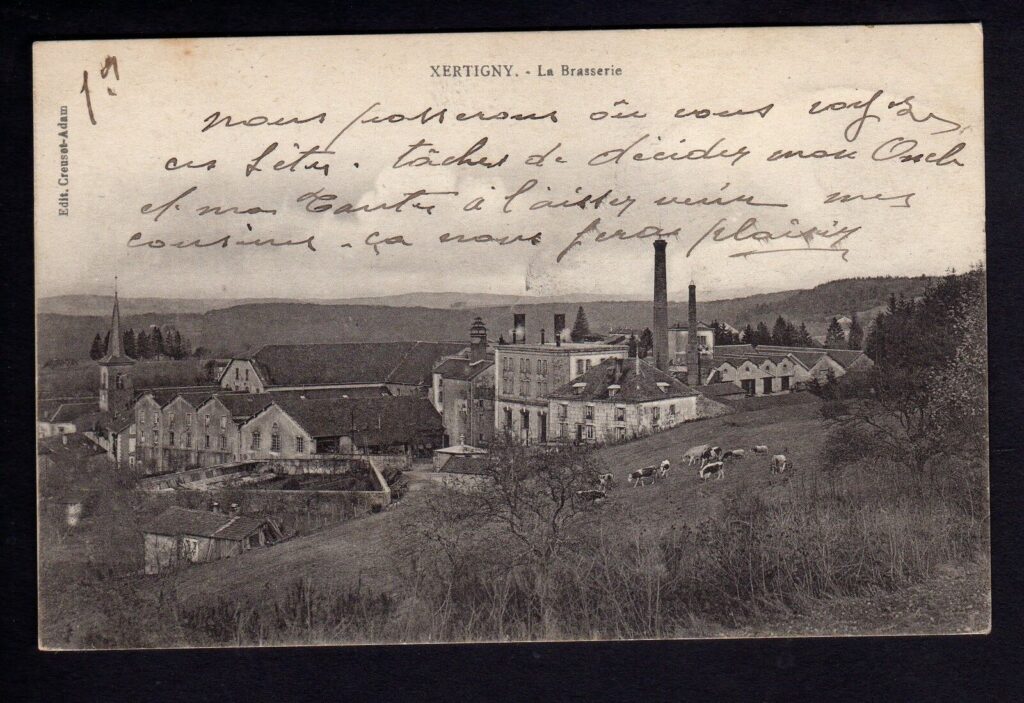 XERTIGNY. - La Brasserie
Edit. Creuset-Adam
nous passerons où vous voyez
ces fêtes. tâchez de décider mon Oncle
et ma Tante à laisser venir mes
cousines. ça nous feras plaisir